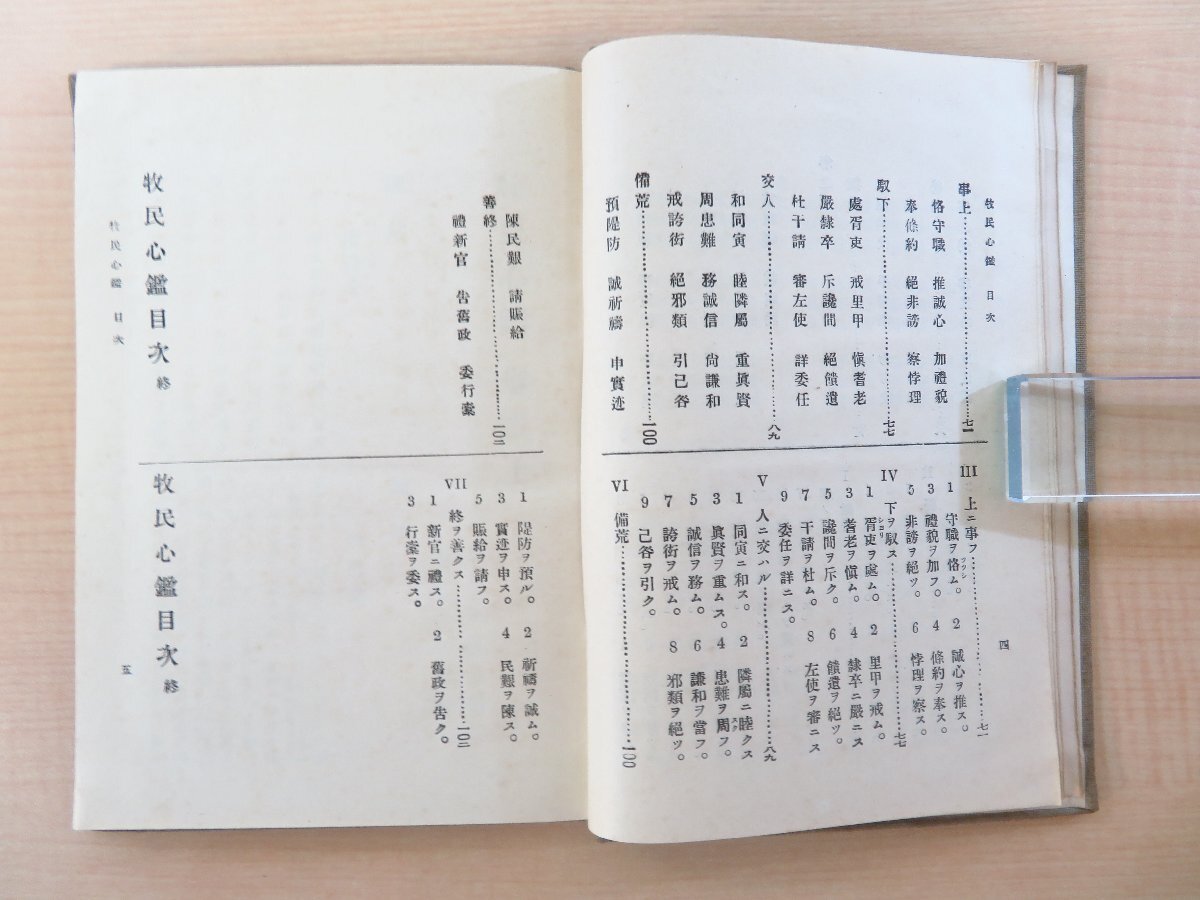 牧民心鑑 目次
事上……七一
恪守職 推誠心 加禮貌
奉條約 絕非謗 察悖理
馭下……七七
處胥吏 戒里甲 愼耆老
嚴隷卒 斥讒間 絕饋遺
杜干請 審左使 詳委任
交人……八九
和同寅 睦隣屬 重眞賢
周患難 務誠信 尙謙和
戒誇衒 絕邪類 引己咎
備荒……100
預隄防 誠祈禱 申實迹
III 上ニ事フ……七一
1 守職ヲ恪ム。 2 誠心ヲ推ス。
3 禮貌ヲ加フ。 4 條約ヲ奉ス。
5 非謗ヲ絕ツ。 6 悖理ヲ察ス。
IV 下ヲ馭ス……七七
1 胥吏ヲ處ム。 2 里甲ヲ戒ム。
3 耆老ヲ愼ム。 4 隷卒ニ嚴ニス
5 讒間ヲ斥ク。 6 饋遺ヲ絕ツ。
7 干請ヲ杜ム。 8 左使ヲ審ニス
9 委任ヲ詳ニス。
V 人ニ交ハル……八九
1 同寅ニ和ス。 2 隣屬ニ睦クス
3 眞賢ヲ重ムス。 4 患難ヲ周フ。
5 誠信ヲ務ム。 6 謙和ヲ當フ。
7 誇衒ヲ戒ム。 8 邪類ヲ絕ツ。
9 己咎ヲ引ク。
VI 備荒……100
四
陳民艱 請賑給
善終……一〇二
禮新官 告舊政 委行槖
牧民心鑑目次 終
牧民心鑑 目次
1 隄防ヲ預ル。 2 祈禱ヲ誠ム。
3 實迹ヲ申ス。 4 民艱ヲ陳ス。
5 賑給ヲ請フ。
VII 終ヲ善クス……一〇二
1 新官ニ禮ス。 2 舊政ヲ告ク。
3 行槖ヲ委ス。
牧民心鑑目次 終
五